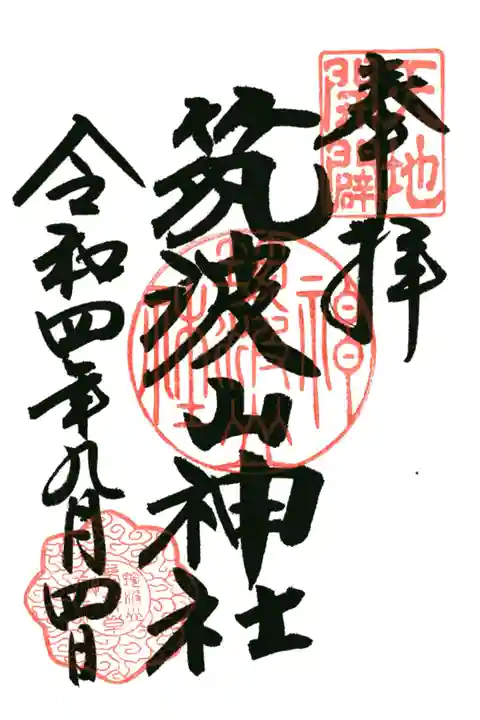 奉拝
天地
開闢
筑波山神社
令和四年九月四日